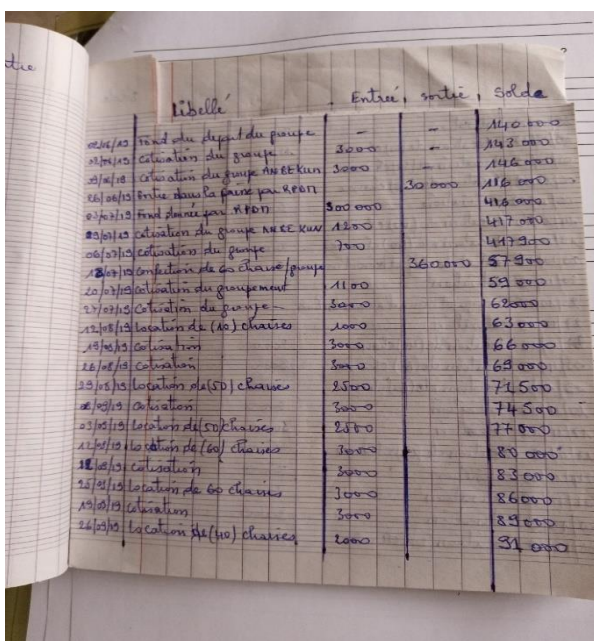 tie
Libellé Entreé sortie Solde
02/06/19 Fond du depart du groupe - - 140.000
cotisation du groupe 3000 - 143 000
cotisation du groupe ANBEKUN 3000 - 146 000
26/06/19 dans la par RPDM 30 000 116 000
03/07/19 Fond par RPDM 300 000 416.000
cotisation du groupe ANBE KUN 1200 417 200
06/07/19 cotisation du groupe 700 417900
/07/19 confection de 60 chaise/groupe 360.000 57900
20/07/19 cotisation du groupement 1100 59 000
27/07/19 cotisation du groupe 3000 62000
12/08/19 Location de (10) chaises 1000 63 000
19/08/19 cotisation 3000 66 000
26/08/19 cotisation 3000 69 000
29/08/19 Location de (50) chaises 2500 71,500
/09/19 cotisation 3000 74500
03/09/19 Location de (50) chaises 2500 77 000
12/09/19 Location de (60) chaises 3000 80 000
/09/19 cotisation 3000 83 000
25/09/19 Location de 60 chaises 3000 86000
19/09/19 cotisation 3000 89000
26/09/19 Location de (40) chaises 2000 91 000